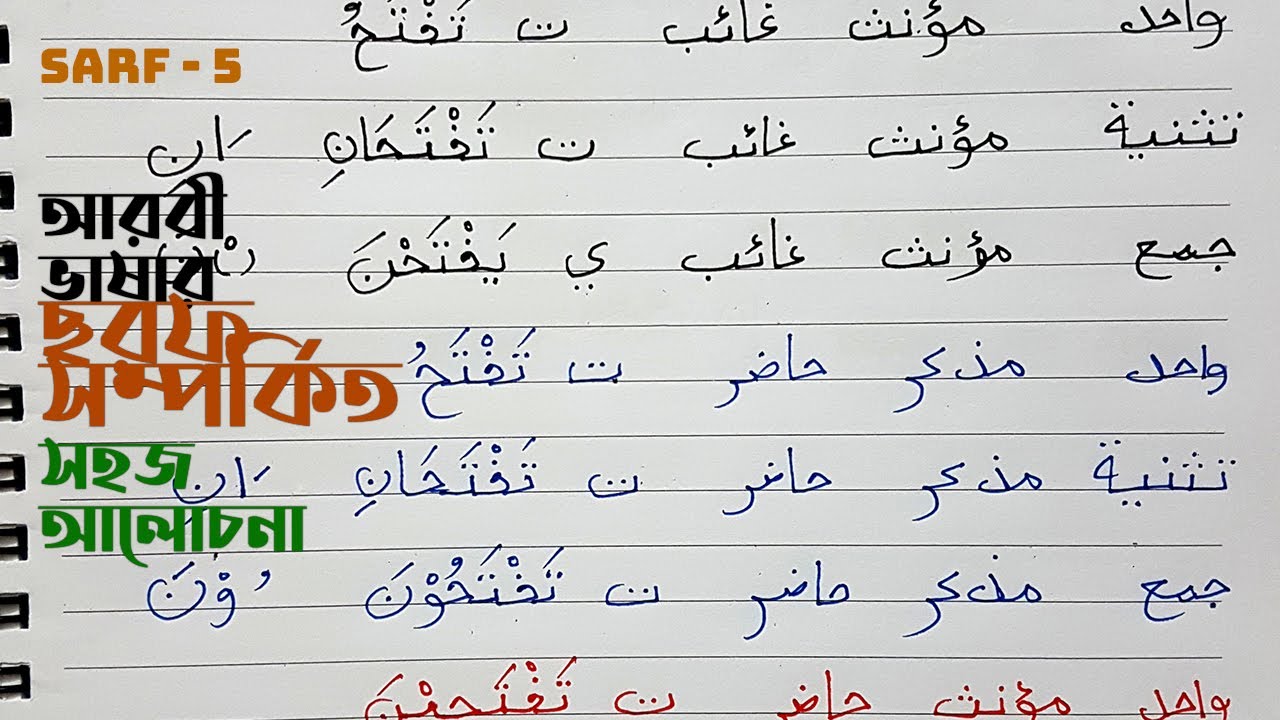 واحد مؤنث غائب ت تَفْتَحُ
SARF - 5
تثنية مؤنث غائب ت تَفْتَحَانِ َانِ
جمع مؤنث غائب ي يَفْتَحْنَ
আরবী
ভাষার
ছরফ
সম্পর্কিত
واحد مذكر حاضر ت تَفْتَحُ
تثنية مذكر حاضر ت تَفْتَحَانِ َانِ
সহজ
আলোচনা
جمع مذكر حاضر ت تَفْتَحُوْنَ ُوْنَ
واحد مؤنث حاضر ت تَفْتَحِيْنَ